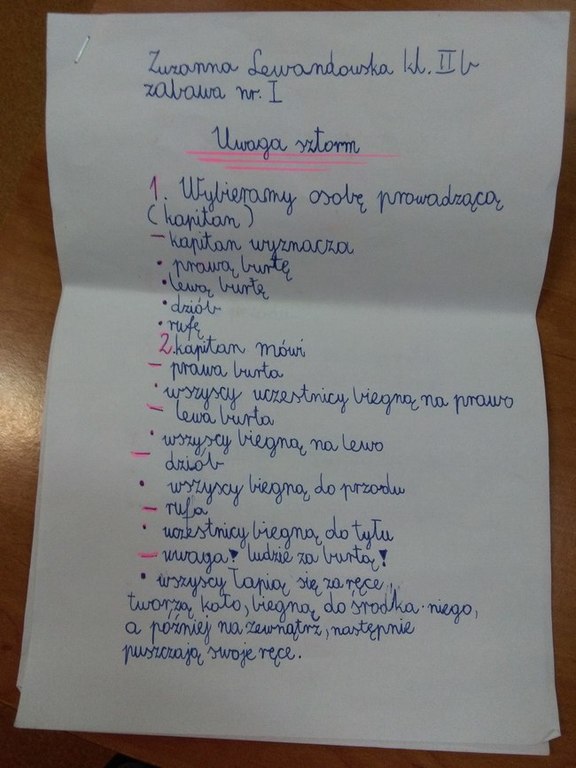 Zuzanna Lewandowska kl. II b
zabawa nr. I
Uwaga sztorm
1. Wybieramy osobę prowadzącą
(kapitan)
– kapitan wyznacza
• prawą burtę
• lewą burtę
• dziób
• rufę
2. kapitan mówi
– prawa burta
• wszyscy uczestnicy biegną na prawo
– lewa burta
• wszyscy biegną na lewo
– dziób
• wszyscy biegną do przodu
– rufa
• uczestnicy biegną do tyłu
– uwaga! ludzie za burtą!
• wszyscy łapią się za ręce,
tworzą koło, biegną do środka niego,
a później na zewnątrz, następnie
puszczają swoje ręce.